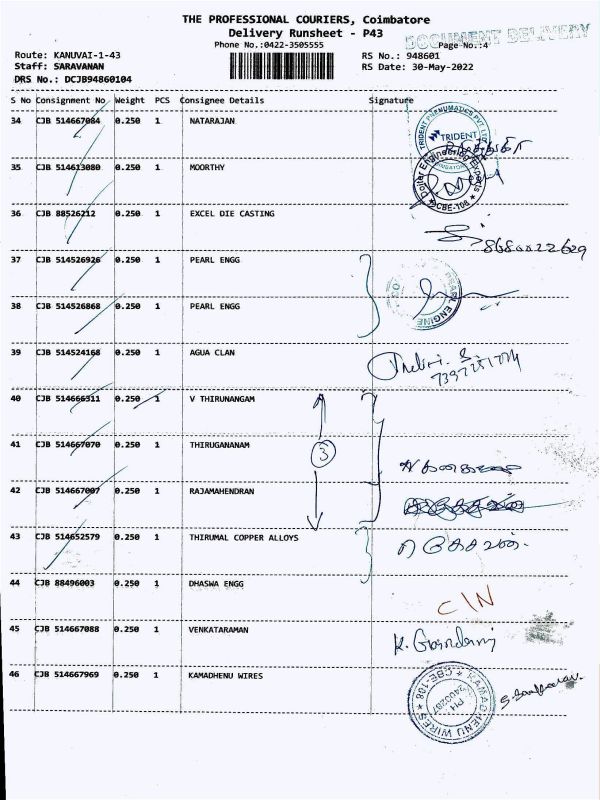 THE PROFESSIONAL COURIERS, Coimbatore
Delivery Runsheet - P43
DOCUMENT DELIVERY
Phone No.:0422-3505555
Page No.:4
Route: KANUVAI-1-43
RS No.: 948601
Staff: SARAVANAN
RS Date: 30-May-2022
DRS No.: DCJB94860104
S No Consignment No Weight PCS Consignee Details Signature
34 CJB 514667084 0.250 1 NATARAJAN
TRIDENT PNEUMATICS PVT LTD
TRIDENT
35 CJB 514613080 0.250 1 MOORTHY
CBE-108
36 CJB 88526212 0.250 1 EXCEL DIE CASTING
8680022629
37 CJB 514526926 0.250 1 PEARL ENGG
38 CJB 514526868 0.250 1 PEARL ENGG
39 CJB 514524168 0.250 1 AGUA CLAN
7397251774
40 CJB 514666311 0.250 1 V THIRUNANGAM
41 CJB 514667070 0.250 1 THIRUGANANAM
3
42 CJB 514667007 0.250 1 RAJAMAHENDRAN
43 CJB 514652579 0.250 1 THIRUMAL COPPER ALLOYS
44 CJB 88496003 0.250 1 DHASWA ENGG
C/N
45 CJB 514667088 0.250 1 VENKATARAMAN
46 CJB 514667969 0.250 1 KAMADHENU WIRES
KAMADHENU WIRES
CBE-108